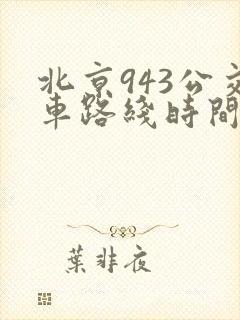 北京943公交
車路綫時間
葉非夜